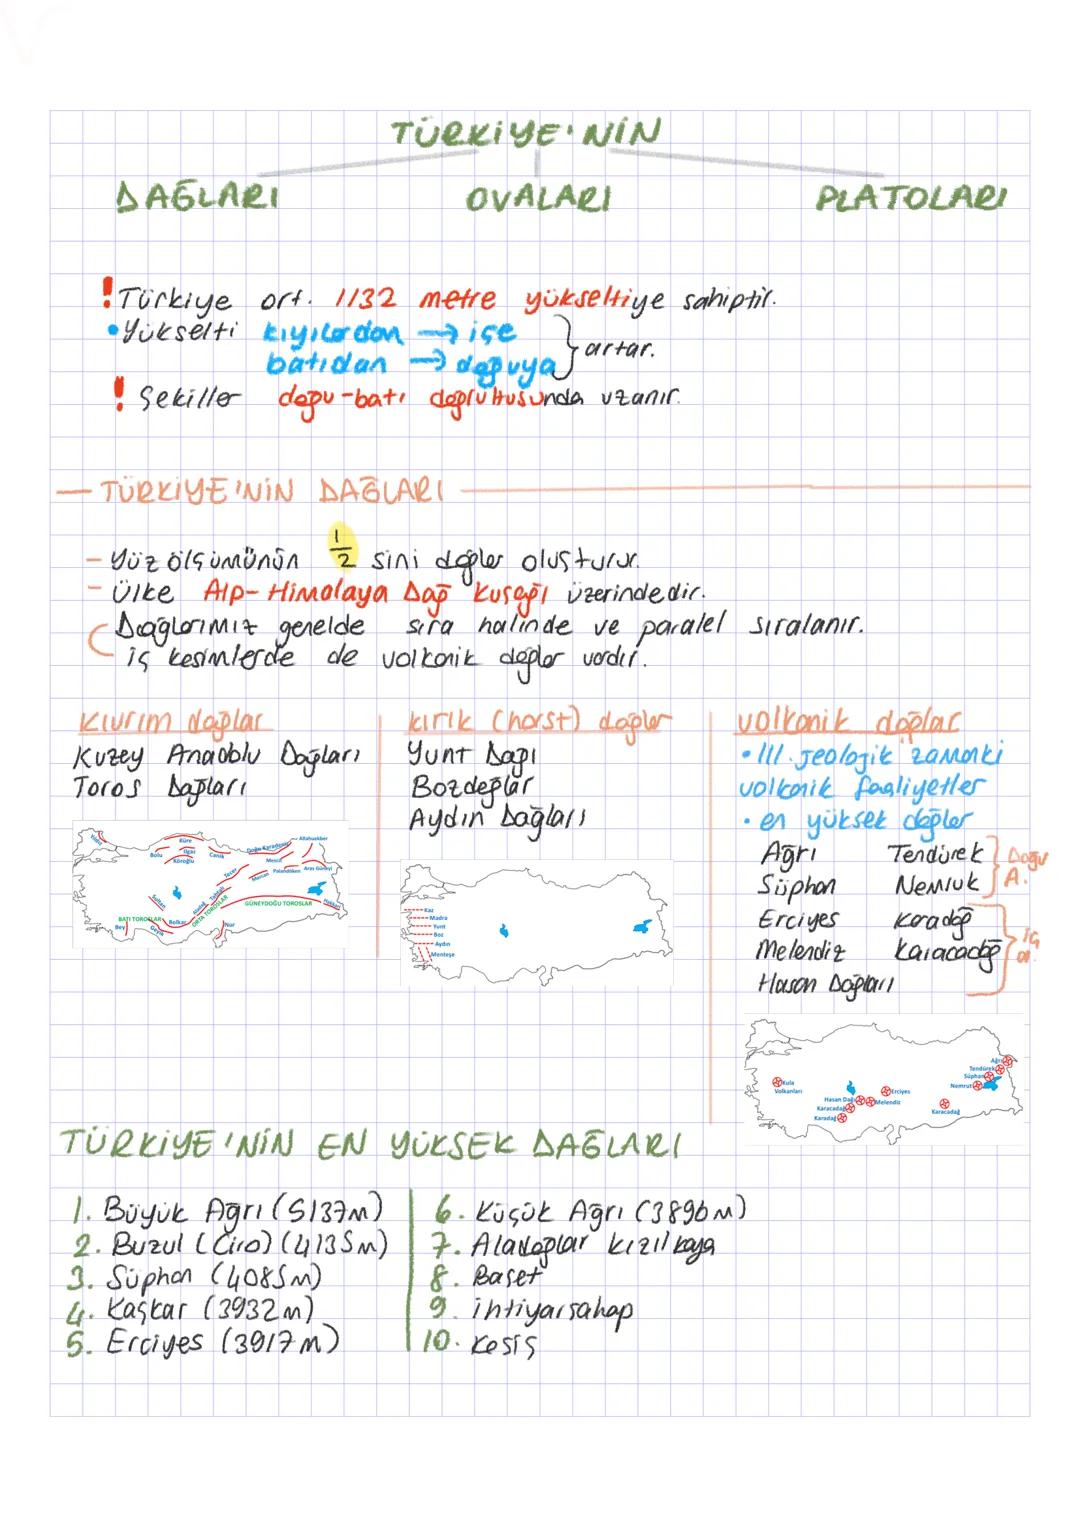 TÜRKİYE'NİN
DAĞLARI OVALARI PLATOLARI
! Türkiye ort. 1132 metre yükseltiye sahiptir.
• Yükselti kıyılardan → içe
batıdan → doğuya } artar.
! Şekiller doğu-batı doğrultusunda uzanır.
— TÜRKİYE'NİN DAĞLARI
- Yüz ölçümünün 1/2 sini dağlar oluşturur.
- Ülke Alp-Himalaya Dağ Kuşağı üzerindedir.
Dağlarımız genelde sıra halinde ve paralel sıralanır.
iç kesimlerde de volkanik dağlar vardır.
kıvrım dağlar
Kuzey Anadolu Dağları
Toros Dağları
Yıldız
Küre
Ilgaz
Bolu
Köroğlu
Canik
Doğu Karadeniz
Allahuekber
Mescit
Palandöken
Aras Güneyi
Tecer
Mercan
Sultan
Tahtalı
Aladağ
ORTA TOROSLAR
GÜNEYDOĞU TOROSLAR
Hakkari
BATI TOROSLAR
Bey
Geyik
Bolkar
Nur
kırık (horst) dağlar
Yunt Dağı
Bozdağlar
Aydın Dağları
Kaz
Madra
Yunt
Boz
Aydın
Menteşe
volkanik dağlar
• III. jeolojik zamanki
volkanik faaliyetler
• en yüksek dağlar
Ağrı Tendürek
Süphan Nemrut
} Doğu A.
Erciyes Karadağ
Melendiz Karacadağ
Hasan Dağları
} iç a.
Kula
Volkanları
Hasan Dağı
Karacadağ
Karadağ
Erciyes
Melendiz
Ağrı
Tendürek
Süphan
Nemrut
Karacadağ
TÜRKİYE'NİN EN YÜKSEK DAĞLARI
1. Büyük Ağrı (5137m)
2. Buzul (Cilo) (4135m)
3. Süphan (4085m)
4. Kaşkar (3932m)
5. Erciyes (3917m)
6. Küçük Ağrı (3896m)
7. Aladağlar kızılkaya
8. Başet
9. ihtiyarşahap
10. Keşiş